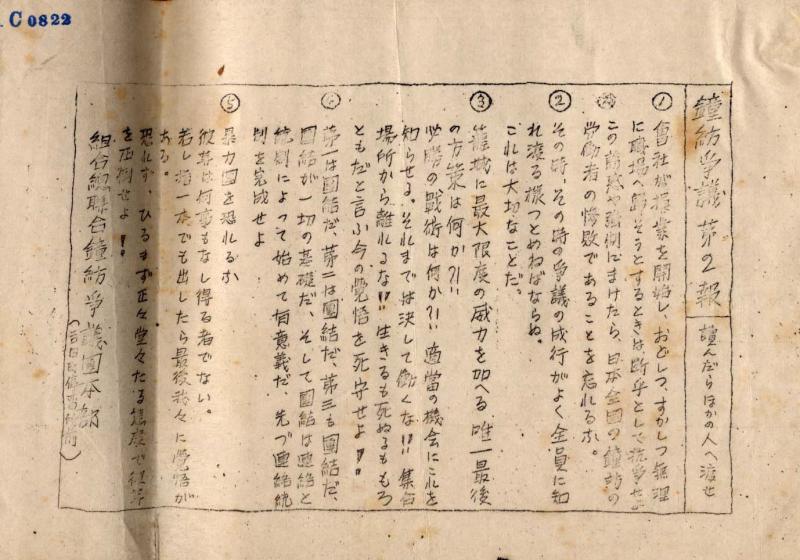 C0822
鐘紡爭議 第2報
讀んだらほかの人へ渡せ
① 會社が操業を開始し、おどしつ、すかしつ無理
に職場へ歸そうとするときは斷乎として抗爭せよ
この誘惑や強制にまけたら、日本全國の鐘紡の
労働者の惨敗であることを忘れるな。
② その時、その時の爭議の成行がよく全員に知
れ渡る樣つとめねばならぬ。
これは大切なことだ。
③ 籠城に最大限度の威力を加へる唯一最後
の方策は何か?!!
必勝の戰術は何か?!! 適當の機会にこれを
知らせる。それまでは決して働くな!! 集合
場所から離れるな!! 生きるも死ぬるももろ
ともだと言ふ今の覺悟を死守せよ!!
第一は團結だ、第二は團結だ、第三も團結だ、
團結が一切の基礎だ、そして團結は連絡と
統制によって始めて有意義だ、先づ連絡統
制を完成せよ
⑤ 暴力團を恐れるな
彼等は何事もなし得る者でない。
若し指一本でも出したら最後我々に覺悟が
ある。
恐れず、ひるまず正々堂々たる態度で
を圧倒せよ!!
組合總聯合鐘紡爭議團本部